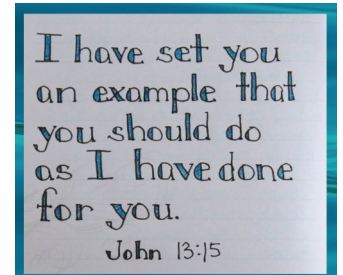 I have set you
an example that
you should do
as I have done
for you.
John 13:15